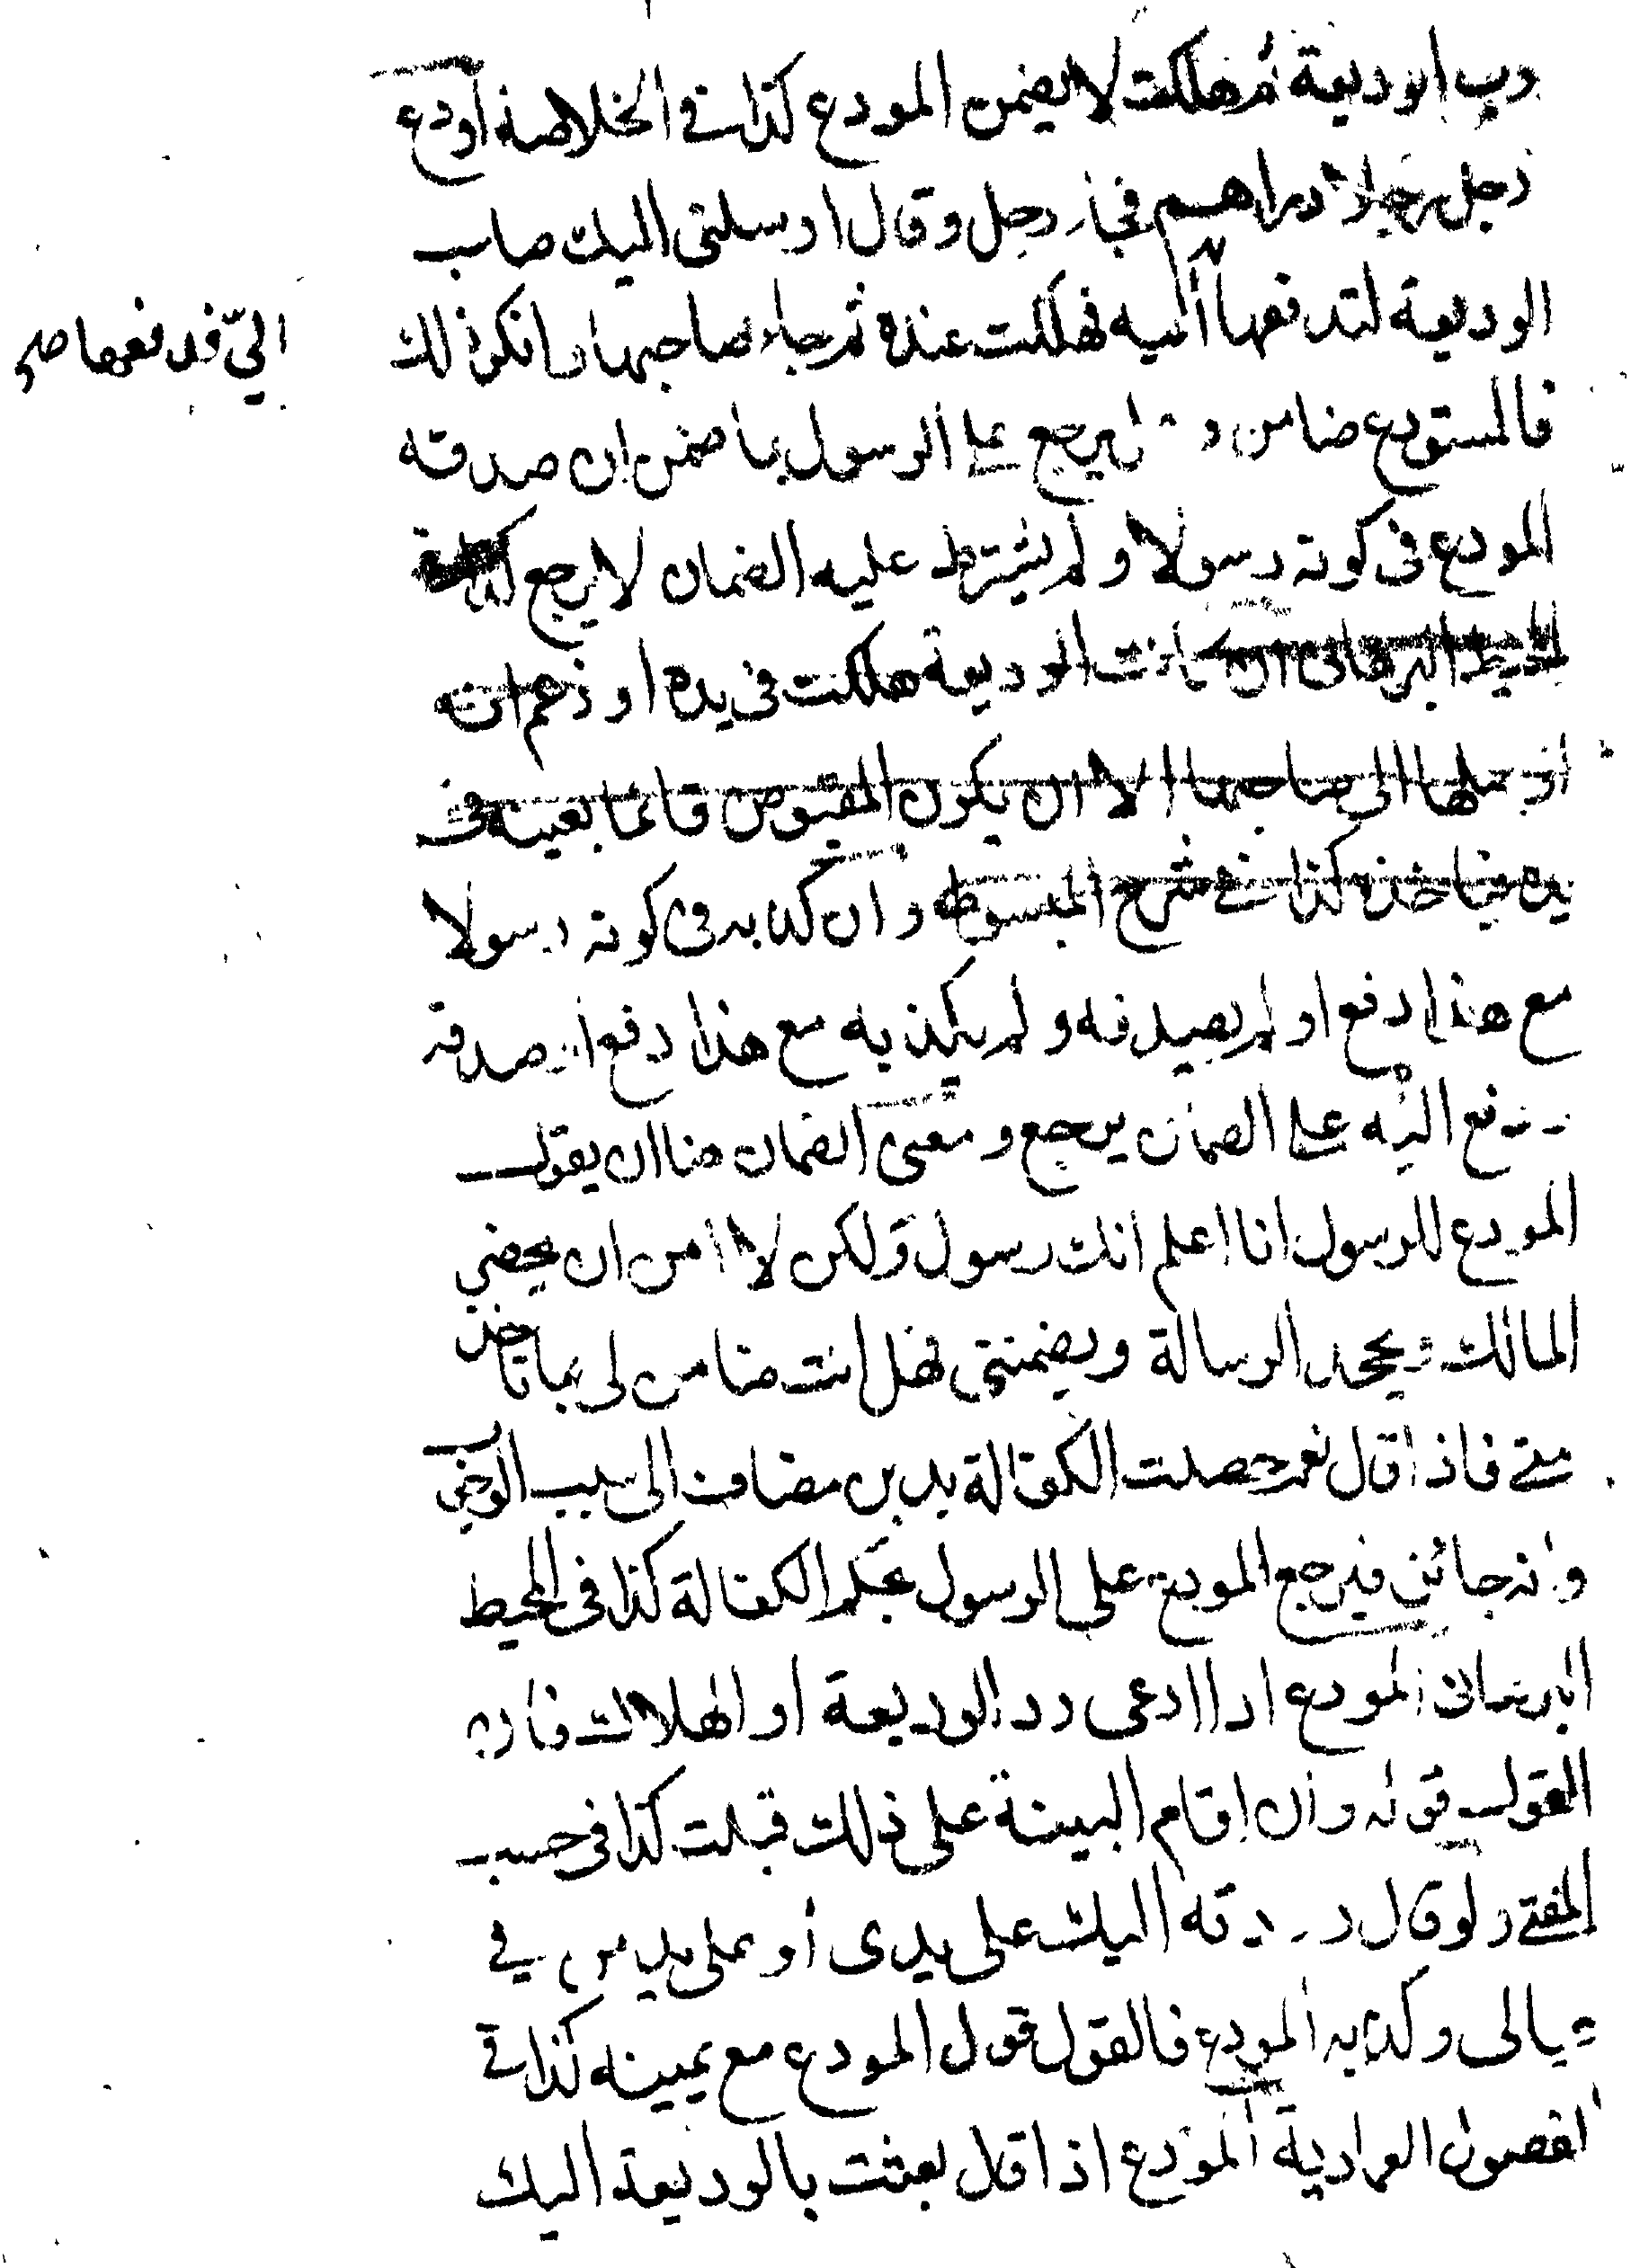 رب الوديعة ثم هلكت لا يضمن المودع كذا في الخلاصة أودع
رجل رجلا دراهم فجاء رجل وقال ارسلني اليك صاحب
الوديعة لتدفعها اليه فهلكت عنده ثم جاء صاحبها وانكر ذلك
اليّ فدفعها صح
فالمستودع ضامن و يرجع على الرسول بما ضمن ان صدقه
المودع في كونه رسولا ولم يشترط عليه الضمان لا يرجع كذا في
المحيط البرهاني ان كانت الوديعة هلكت في يده او زعم انه
اوصلها الى صاحبها الا ان يكون المقبوض قائما بعينه في
يده فياخذه كذا في شرح المبسوط وان كذبه في كونه رسولا
مع هذا دفع او لم يصدقه ولم يكذبه مع هذا دفع او صدقه
ودفع اليه على الضمان يرجع ومعنى الضمان هنا ان يقول
المودع للرسول انا اعلم انك رسول ولكن لا امن ان يحضر
المالك ويجحد الرسالة ويضمنني فهل انت ضامن لي بما تاخذ
مني فاذا قال نعم حصلت الكفالة بدين مضاف الى سبب الوجوب
وانه جائز فيرجع المودع على الرسول بحكم الكفالة كذا في المحيط
البرهاني المودع اذا ادعى رد الوديعة او الهلاك فان
القول قوله وان اقام البينة على ذلك قبلت كذا في حسب
المفتي ولو قال رددته اليك على يدي أو على يد من في
عيالي وكذبه المودع فالقول قول المودع مع يمينه كذا في
الفصول العمادية المودع اذا قال بعثت بالوديعة اليك